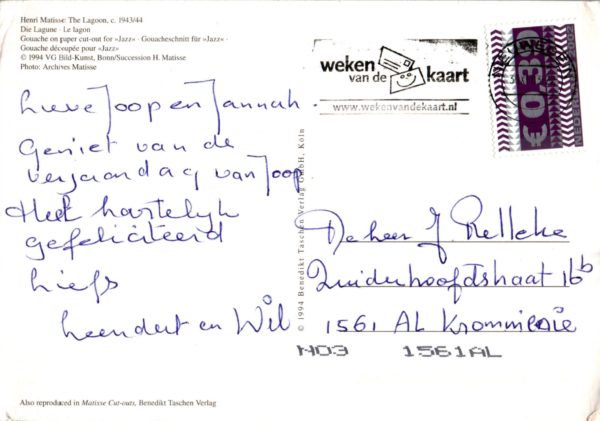 Henri Matisse: The Lagoon, c. 1943/44
Die Lagune · Le lagon
Gouache on paper cut-out for «Jazz» · Gouacheschnitt für «Jazz» ·
Gouache découpée pour «Jazz»
© 1994 VG Bild-Kunst, Bonn/Succession H. Matisse
Photo: Archives Matisse
Lieve Joop en Jannah.
Geniet van de
verjaardag van Joop
Heel hartelijk
gefeliciteerd
liefs
Leendert en Wil
© 1994 Benedikt Taschen Verlag GmbH, Köln
weken
van de kaart
www.wekenvandekaart.nl
€ 0,39
NEDERLAND
De heer J. Relleke
Zuiderhoofdstraat 16b
1561 AL Krommenie
NO3 1561AL
Also reproduced in Matisse Cut-outs, Benedikt Taschen Verlag